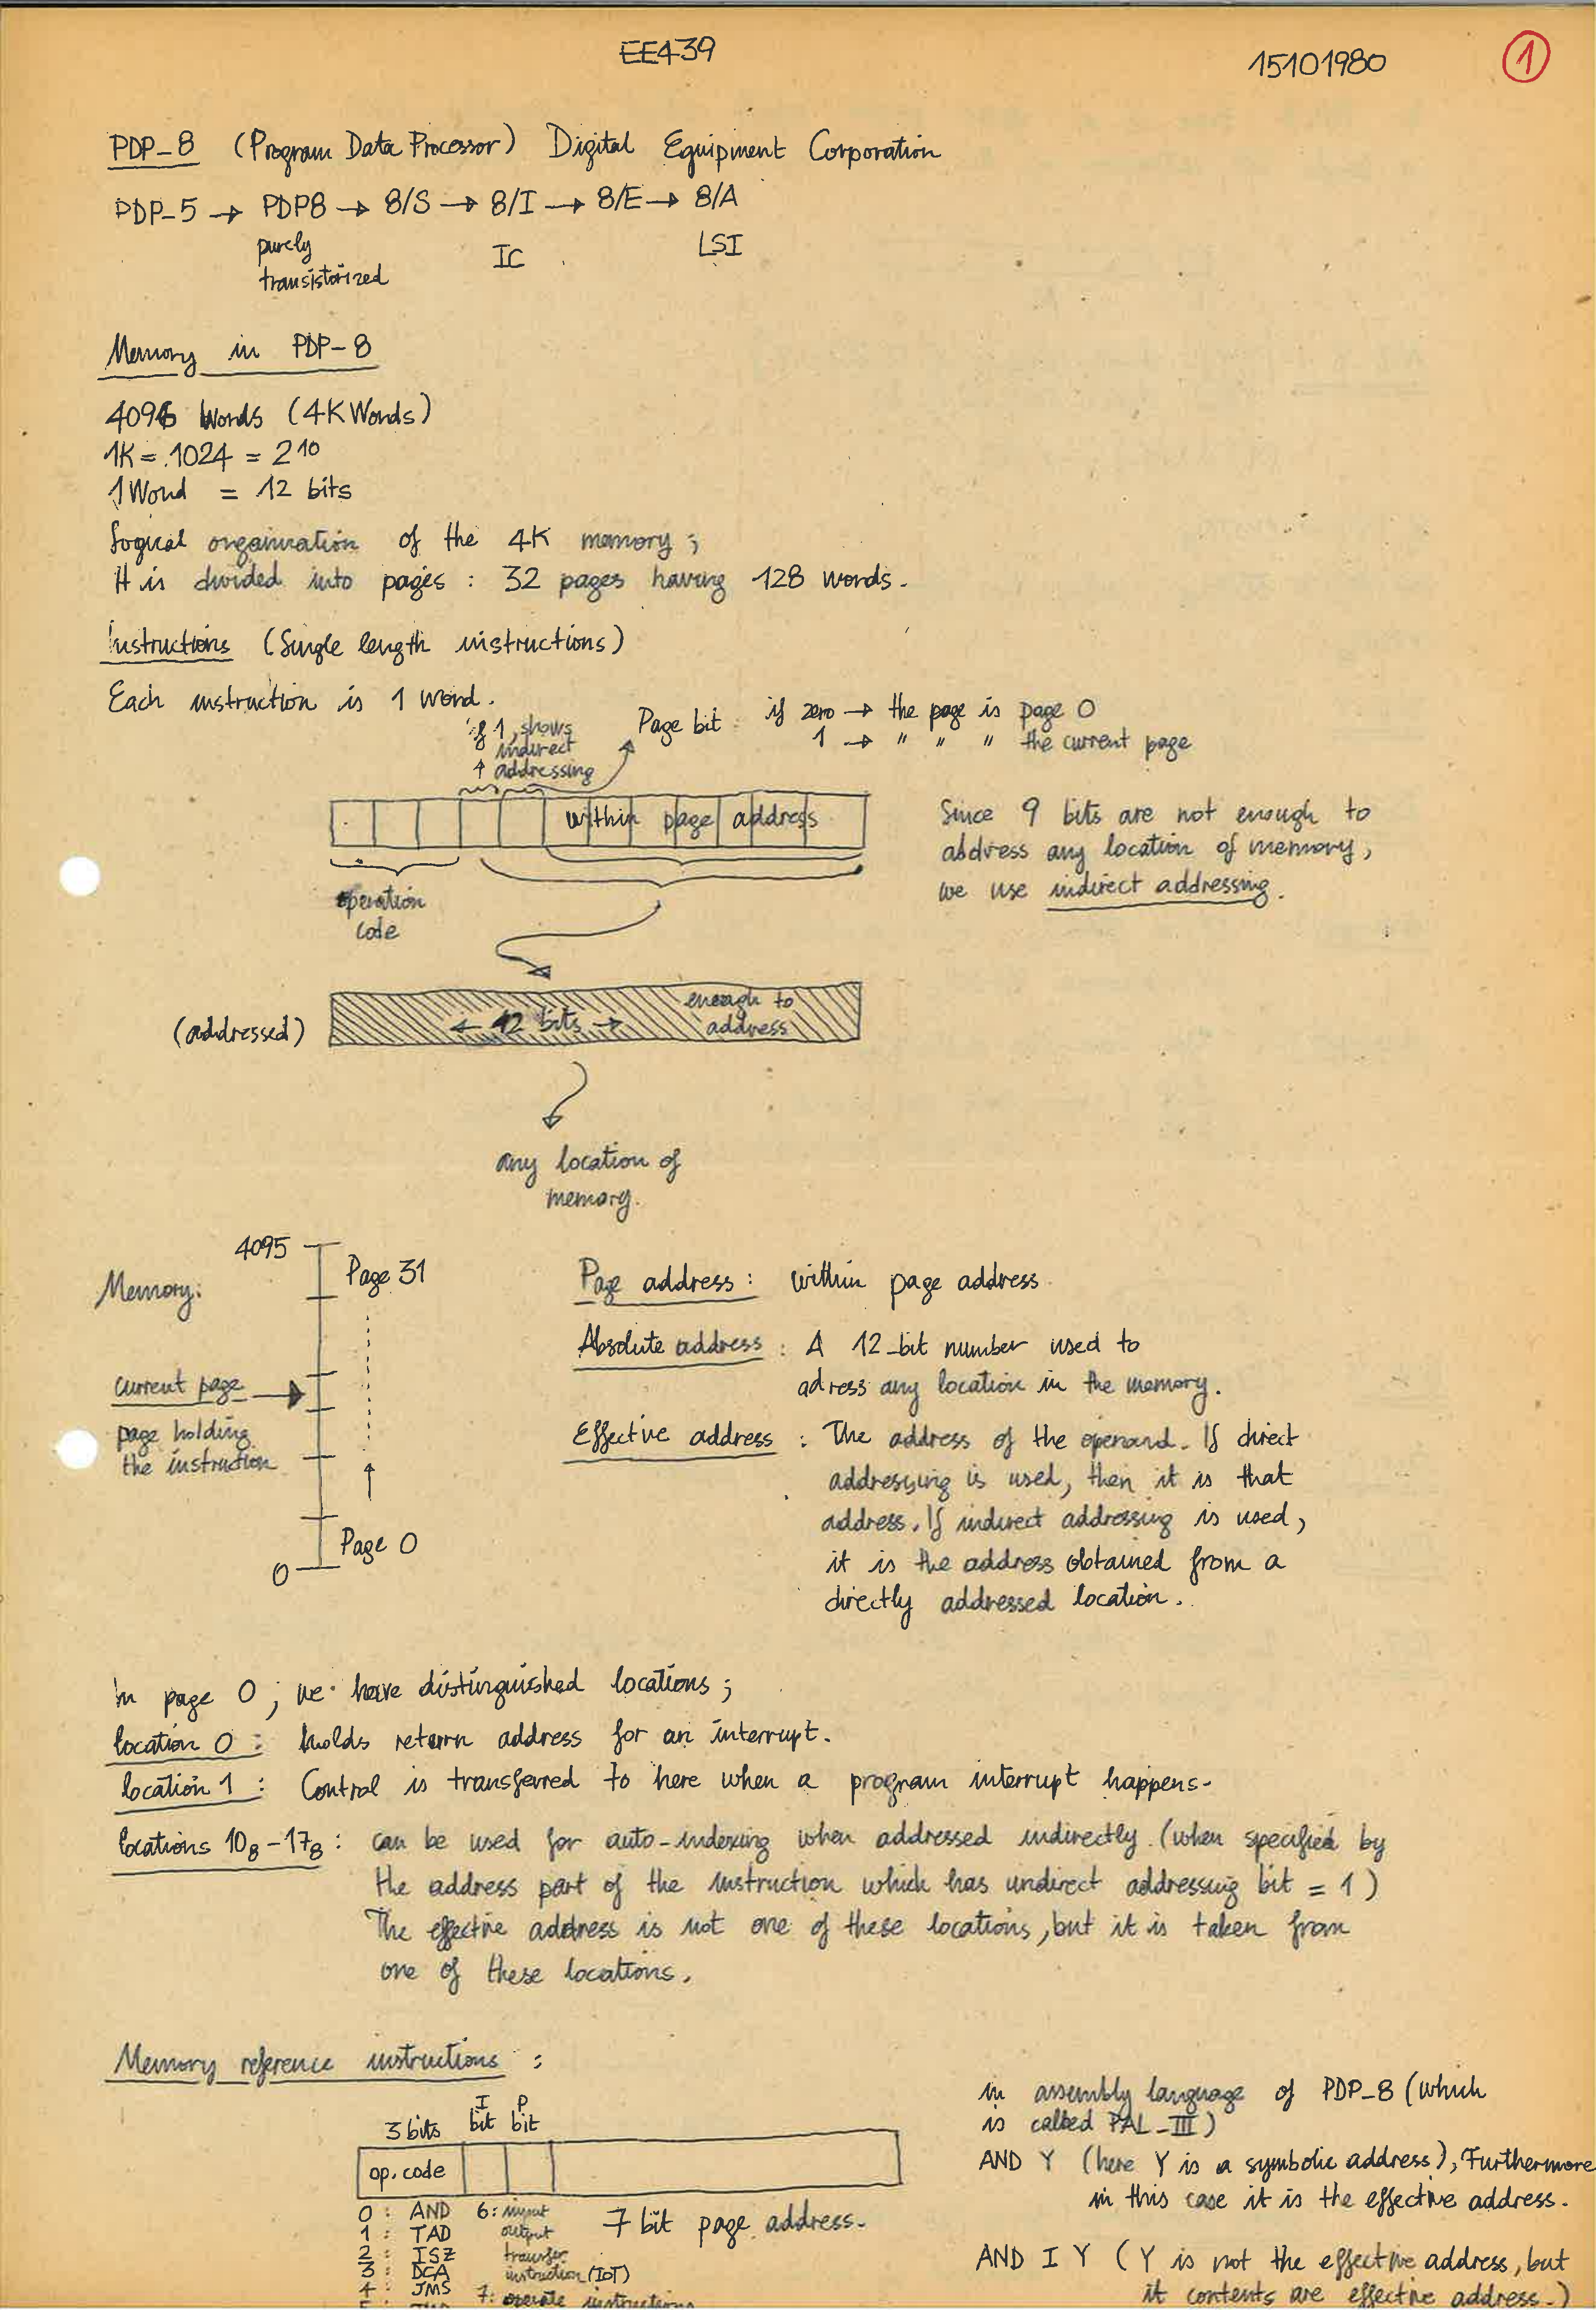 EE439
15101980
1
PDP-8 (Program Data Processor) Digital Equipment Corporation
PDP-5 → PDP8 → 8/S → 8/I → 8/E → 8/A
purely
transistorized
IC
LSI
Memory in PDP-8
4096 Words (4K Words)
1K = 1024 = 2¹⁰
1 Word = 12 bits
Logical organization of the 4K memory ;
It is divided into pages : 32 pages having 128 words.
Instructions (Single length instructions)
Each instruction is 1 word.
if 1, shows
indirect
↑ addressing
Page bit if zero → the page is page 0
1 → " " " the current page
within page address
operation
code
Since 9 bits are not enough to
address any location of memory,
we use indirect addressing.
(addressed)
← 12 bits →
enough to
address
any location of
memory.
Memory:
4095
Page 31
current page →
page holding
the instruction
↑
Page 0
0
Page address : within page address
Absolute address : A 12-bit number used to
adress any location in the memory.
Effective address : The address of the operand. If direct
addressing is used, then it is that
address. If indirect addressing is used,
it is the address obtained from a
directly addressed location.
In page 0 ; we have distinguished locations ;
location 0 : holds return address for an interrupt.
location 1 : Control is transferred to here when a program interrupt happens.
locations 10₈-17₈ : can be used for auto-indexing when addressed indirectly. (when specified by
the address part of the instruction which has indirect addressing bit = 1)
The effective address is not one of these locations, but it is taken from
one of these locations.
Memory reference instructions :
3 bits
I
bit
P
bit
op. code
7 bit page address.
0 : AND
1 : TAD
2 : ISZ
3 : DCA
4 : JMS
6 : input
output
transfer
instruction (IOT)
7 : operate instructions
in assembly language of PDP-8 (which
is called PAL-III)
AND Y (here Y is a symbolic address), Furthermore
in this case it is the effective address.
AND I Y (Y is not the effective address, but
it contents are effective address.)